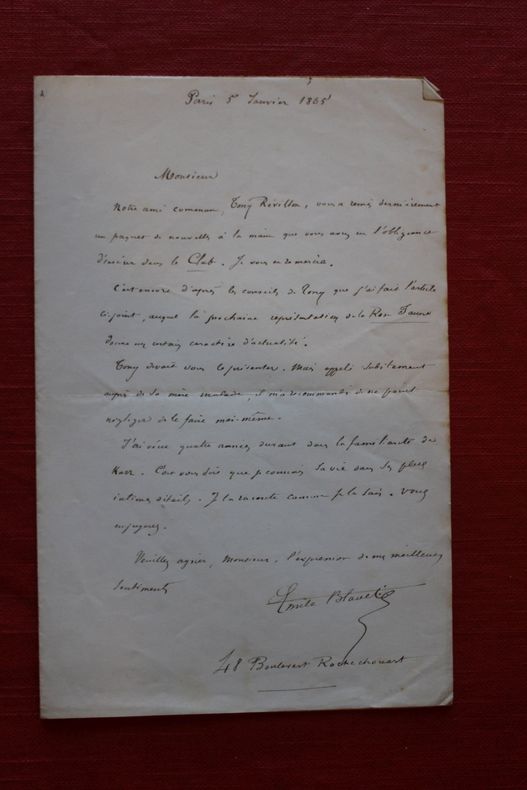 Paris 5 Janvier 1865
Monsieur
Notre ami commun, Tony Révillon, vous a remis dernièrement
un paquet de nouvelles à la main que vous avez eu l'obligeance
d'insérer dans le Club. Je vous en remercie.
C'est encore d'après les conseils de Tony que j'ai fait l'article
ci-joint, auquel la prochaine représentation de la
donne un certain caractère d'actualité.
Tony devait vous le présenter. Mais appelé subitement
auprès de sa mère malade, il m'a recommandé de ne point
négliger de le faire moi-même.
J'ai vécu quatre années durant dans la famille de
Karr. C'est vous dire que je connais sa vie dans ses plus
intimes détails. Je la raconte comme je la sais. Vous
en jugerez.
Veuillez agréer, Monsieur, l'expression de mes meilleurs
sentiments
Emile Blavet
48 Boulevart Rochechouart